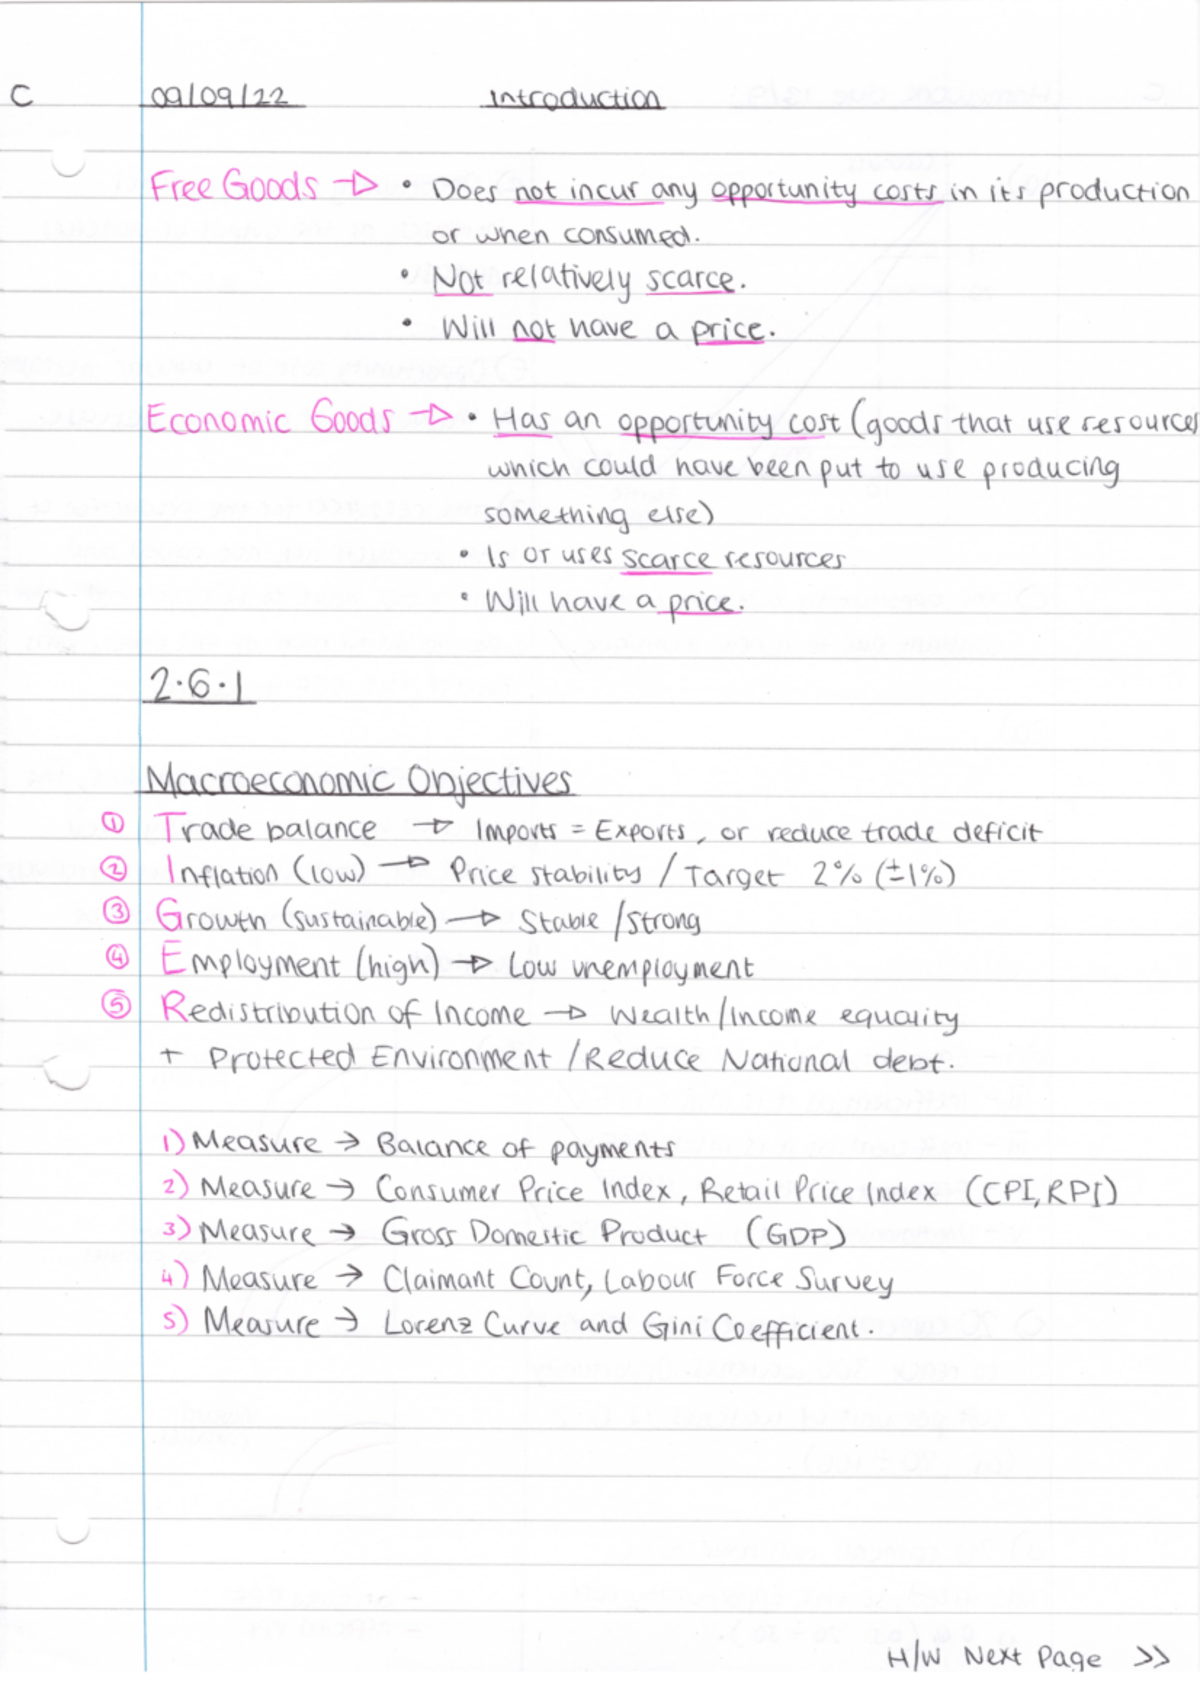 C 09/09/22 Introduction
Free Goods → • Does not incur any opportunity costs in its production
or when consumed.
• Not relatively scarce.
• Will not have a price.
Economic Goods → • Has an opportunity cost (goods that use resources
which could have been put to use producing
something else)
• Is or uses scarce resources
• Will have a price.
2.6.1
Macroeconomic Objectives
① Trade balance → Imports = Exports, or reduce trade deficit
② Inflation (low) → Price stability / Target 2% (±1%)
③ Growth (sustainable) → Stable / Strong
④ Employment (high) → Low unemployment
⑤ Redistribution of Income → Wealth/Income equality
+ Protected Environment / Reduce National debt.
1) Measure → Balance of payments
2) Measure → Consumer Price Index, Retail Price Index (CPI, RPI)
3) Measure → Gross Domestic Product (GDP)
4) Measure → Claimant Count, Labour Force Survey
5) Measure → Lorenz Curve and Gini Coefficient.
H/W Next Page >>